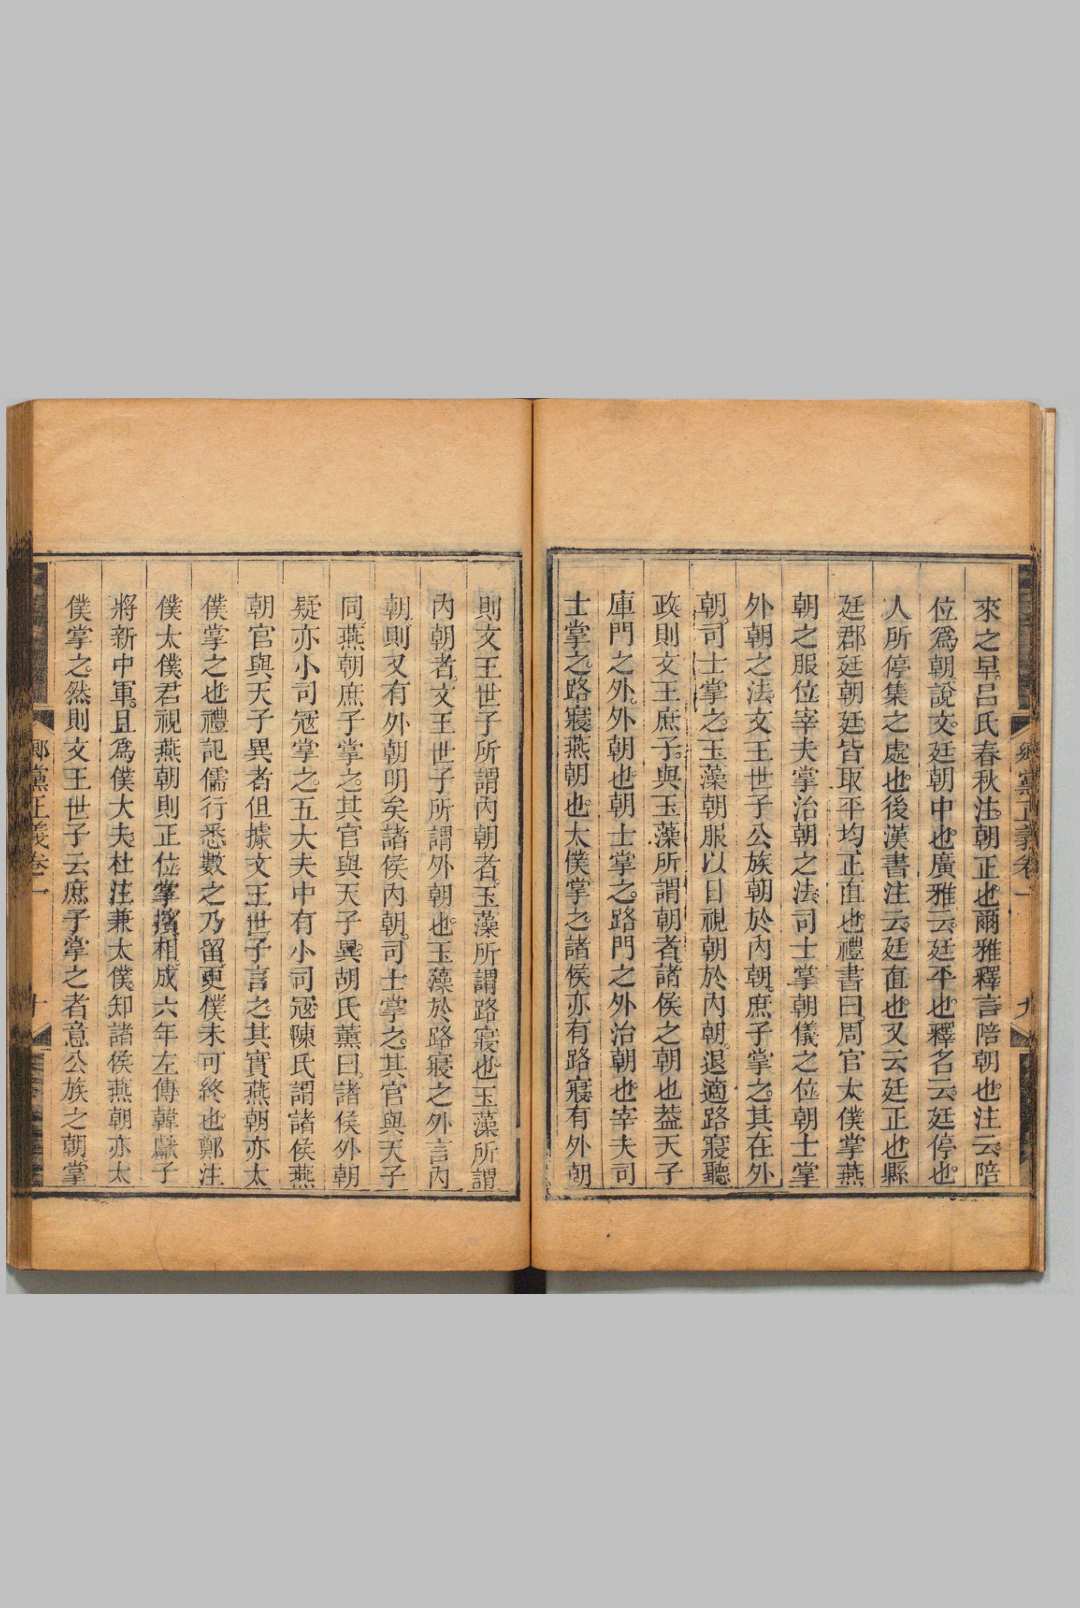 來之早。呂氏春秋注。朝正也。爾雅釋言陪朝也。注云。陪
位爲朝。說文。廷朝中也。廣雅云。廷平也。釋名云。廷停也。
人所停集之處也。後漢書注云。廷直也。又云廷正也。縣
廷郡廷朝廷皆取平均正直也。禮書曰。周官太僕掌燕
朝之服位。宰夫掌治朝之法。司士掌朝儀之位。朝士掌
外朝之法。文王世子公族朝於內朝。庶子掌之。其在外
朝。司士掌之。玉藻朝服以日視朝於內朝。退適路寢聽
政。則文王庶子。與玉藻所謂朝者。諸侯之朝也。葢天子
庫門之外。外朝也。朝士掌之。路門之外治朝也。宰夫司
士掌之。路寢燕朝也。太僕掌之。諸侯亦有路寢有外朝
鄕黨正義卷一
九
則文王世子所謂內朝者。玉藻所謂路寢也。玉藻所謂
內朝者。文王世子所謂外朝也。玉藻於路寢之外言內
朝。則又有外朝明矣。諸侯內朝。司士掌之。其官與天子
同。燕朝庶子掌之。其官與天子異。胡氏薰曰。諸侯外朝
疑亦小司寇掌之。五大夫中有小司寇。陳氏謂諸侯燕
朝官與天子異者。但據文王世子言之。其實燕朝亦太
僕掌之也。禮記儒行。悉數之乃留更僕未可終也。鄭注
僕太僕。君視燕朝則正位掌擯相。成六年左傳韓獻子
將新中軍。且爲僕大夫。杜注兼太僕。知諸侯燕朝亦太
僕掌之。然則文王世子云庶子掌之者。意公族之朝掌
鄕黨正義卷一
十